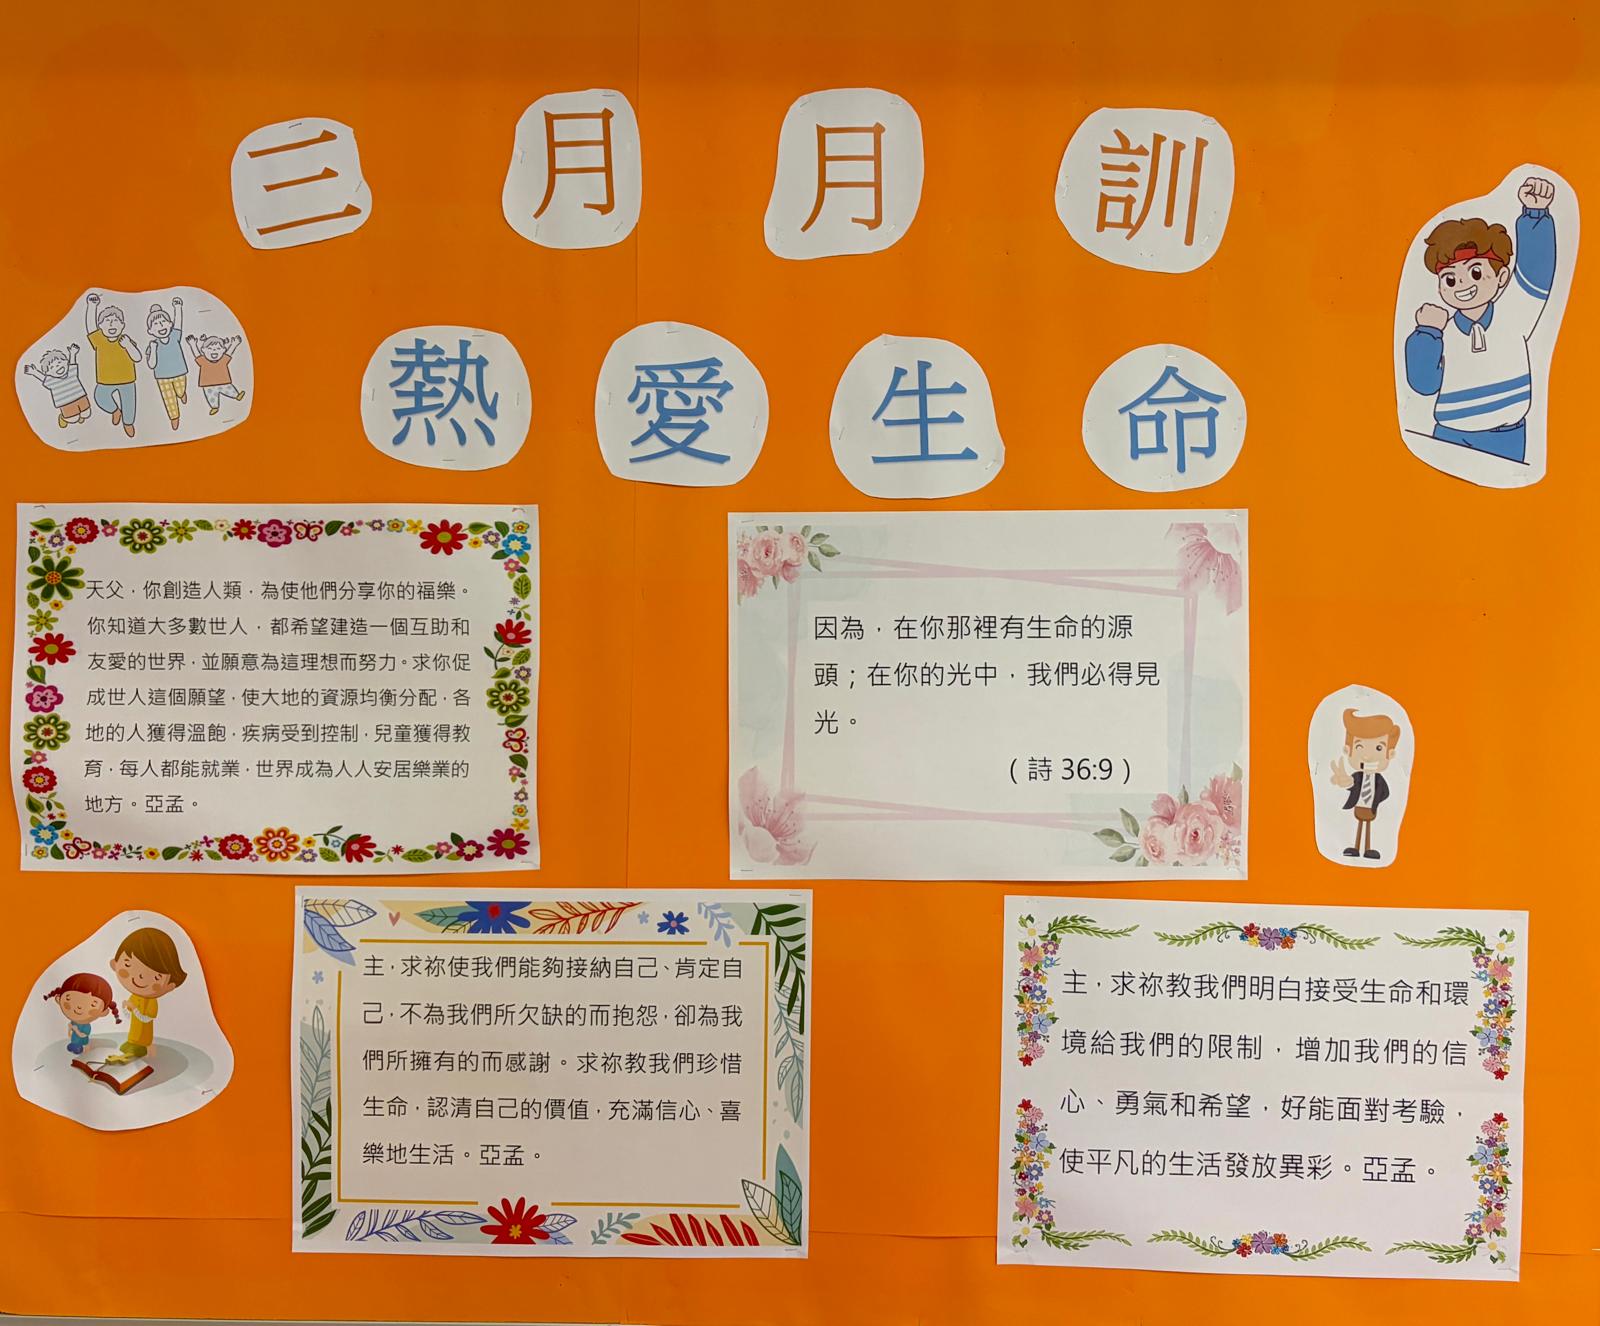 三月月訓
熱愛生命
天父，你創造人類，為使他們分享你的福樂。
你知道大多數世人，都希望建造一個互助和
友愛的世界，並願意為這理想而努力。求你促
成世人這個願望，使大地的資源均衡分配，各
地的人獲得溫飽，疾病受到控制，兒童獲得教
育，每人都能就業，世界成為人人安居樂業的
地方。亞孟。
因為，在你那裡有生命的源
頭；在你的光中，我們必得見
光。
（詩 36:9）
主，求祢使我們能夠接納自己、肯定自
己，不為我們所欠缺的而抱怨，卻為我
們所擁有的而感謝。求祢教我們珍惜
生命，認清自己的價值，充滿信心、喜
樂地生活。亞孟。
主，求祢教我們明白接受生命和環
境給我們的限制，增加我們的信
心、勇氣和希望，好能面對考驗，
使平凡的生活發放異彩。亞孟。